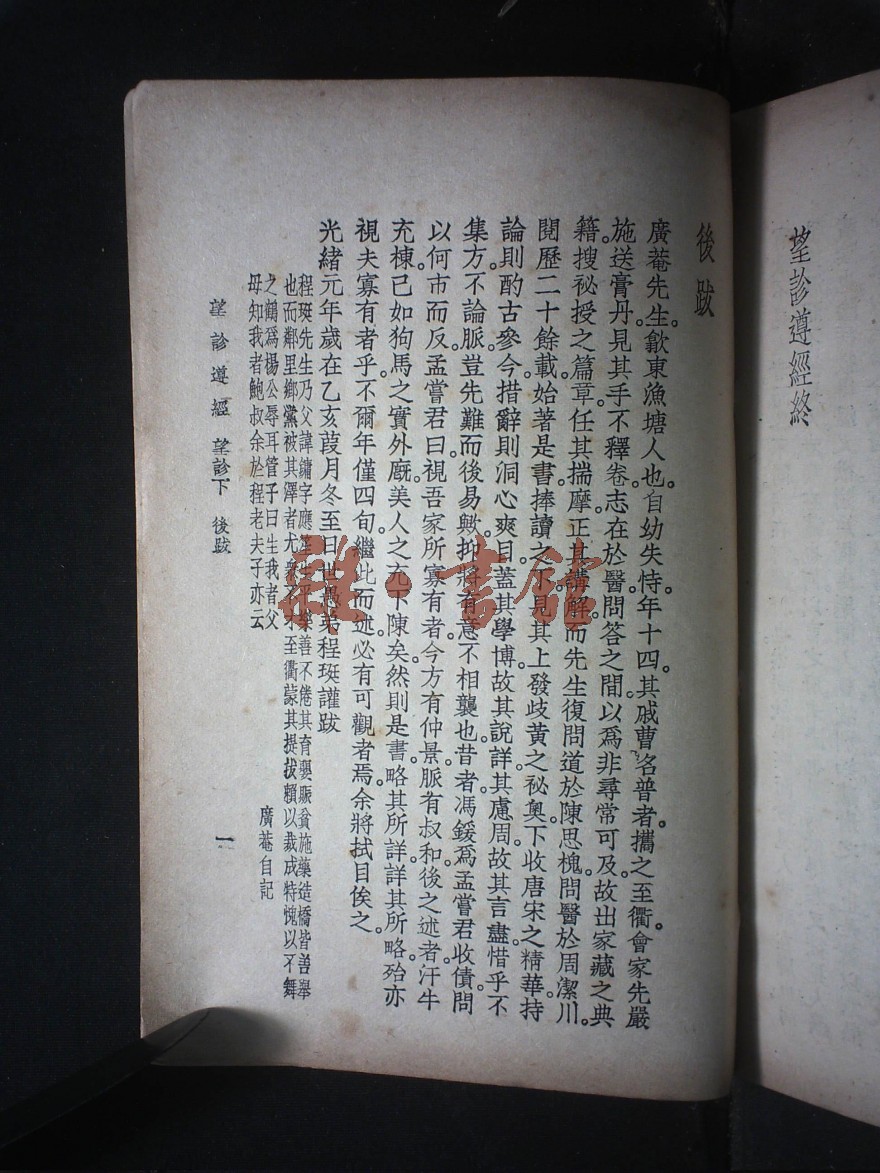 望診遵經終
後跋
廣菴先生。歙東漁塘人也。自幼失恃。年十四。其戚曹名普者。攜之至衢。會家先嚴
施送膏丹。見其手不釋卷。志在於醫。問答之間。以爲非尋常可及。故出家藏之典
籍。搜祕授之篇章。任其揣摩。正其講解。而先生復問道於陳思槐。問醫於周潔川。
閱歷二十餘載。始著是書。捧讀之下。見其上發歧黃之祕奧。下收唐宋之精華。持
論則酌古參今。措辭則洞心爽目。蓋其學博。故其說詳。其慮周。故其言盡。惜乎不
集方。不論脈。豈先難而後易歟。抑將有意不相襲也。昔者馮鍰爲孟嘗君收債。問
以何市而反。孟嘗君曰。視吾家所寡有者。今方有仲景。脈有叔和。後之述者。汗牛
充棟。已如狗馬之實外廐。美人之充下陳矣。然則是書。略其所詳。詳其所略。殆亦
視夫寡有者乎。不爾年僅四旬。繼此而述。必有可觀者焉。余將拭目俟之。
光緖元年歲在乙亥葭月冬至日世愚弟程珽讙跋
程珽先生乃父諱鏞字應 樂善不倦其育嬰賑貧施藥造橋皆善舉
也而鄰里鄉黨被其澤者尤衆 才至衢蒙其提拔賴以裁成特愧以不舞
之鶴爲楊公辱耳管子曰生我者父
母知我者鮑叔余於程老夫子亦云
廣菴自記
望診遵經 望診下 後跋
一
雜·書館